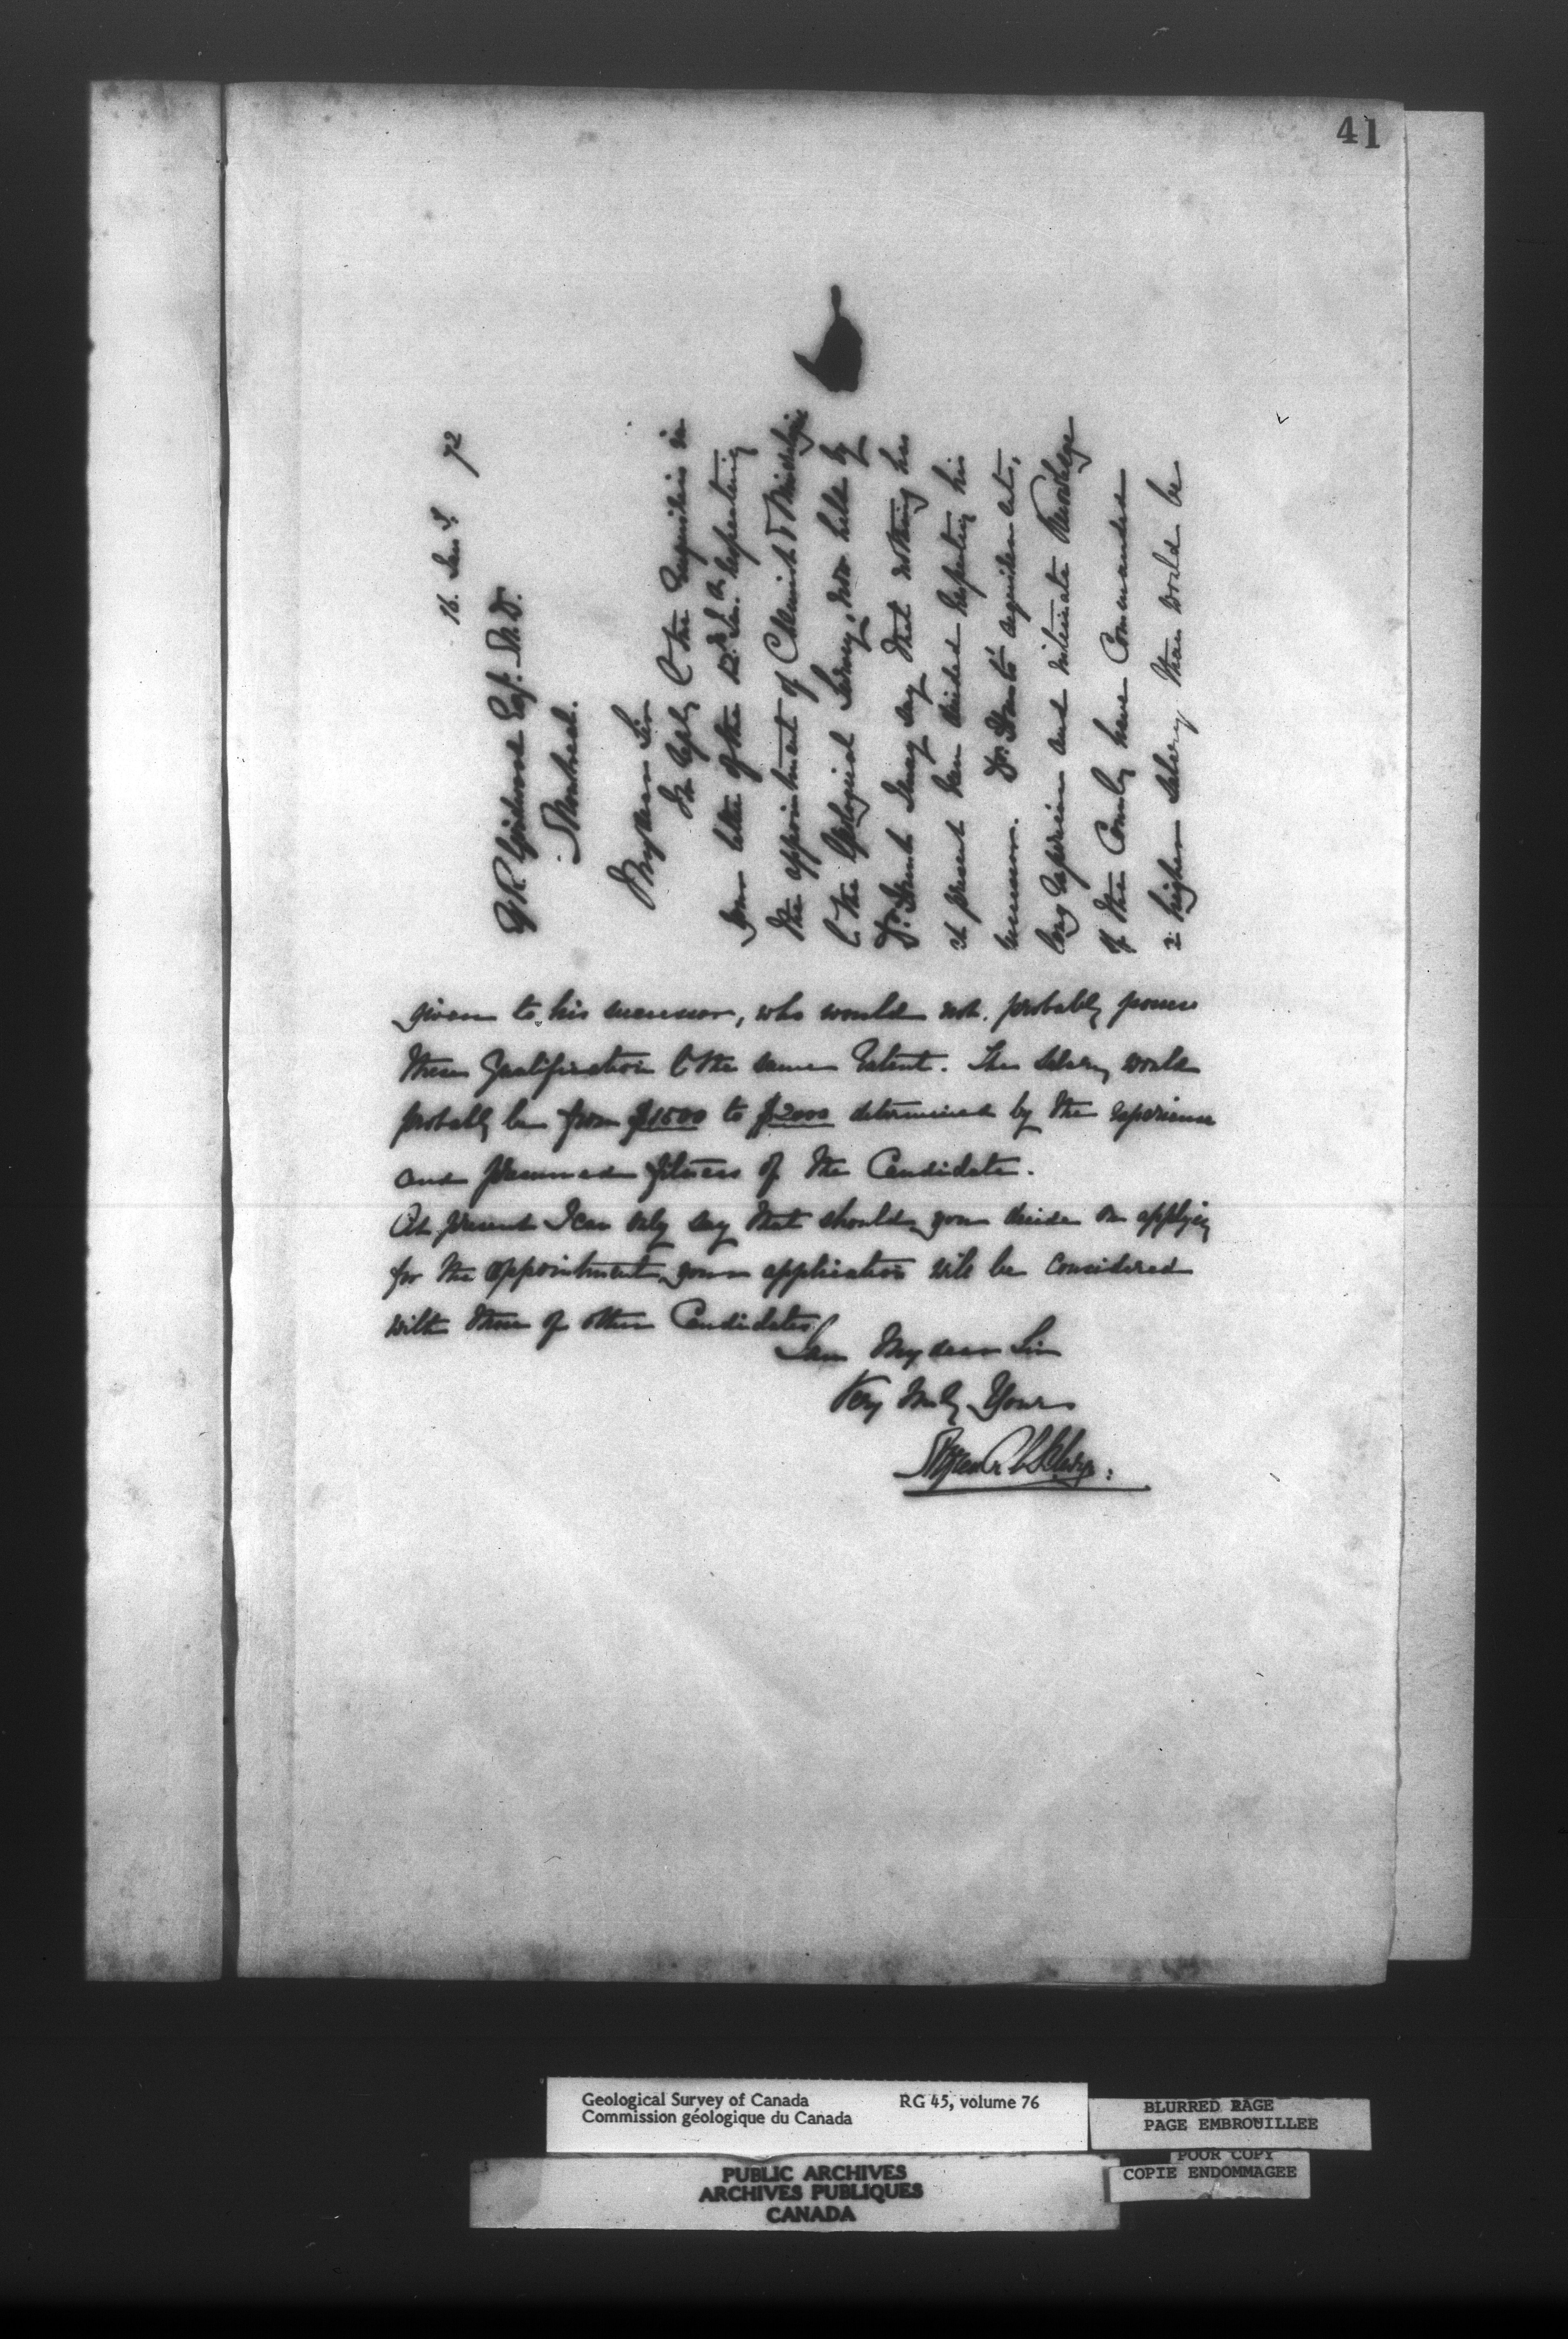 41
16. Jany. 72
G R Grinbrook Esq. M.D.
Montreal.
My dear Sir
In reply to the enquiries in
your letter of the 12th Jan. respecting
the appointment of Chemist & Mineralogist
to the Geological Survey, now held by
Dr. Hunt I may say that nothing has
at present been decided respecting his
successor. Dr. Hunt's acquirements,
long experience and intimate knowledge
of the Country have commanded
a higher Salary than would be
given to his successor, who would not probably possess
these qualifications to the same extent. The Salary would
probably be from $1500 to $2000 determined by the experience
and presumed fitness of the Candidate.
At present I can only say that should you decide on applying
for the appointment, your application will be considered
with those of other Candidates.
I am My dear Sir
Very truly Yours
Alfred R C Selwyn.
Geological Survey of Canada RG 45, volume 76
Commission géologique du Canada
BLURRED PAGE
PAGE EMBROUILLEE
POOR COPY
COPIE ENDOMMAGEE
PUBLIC ARCHIVES
ARCHIVES PUBLIQUES
CANADA